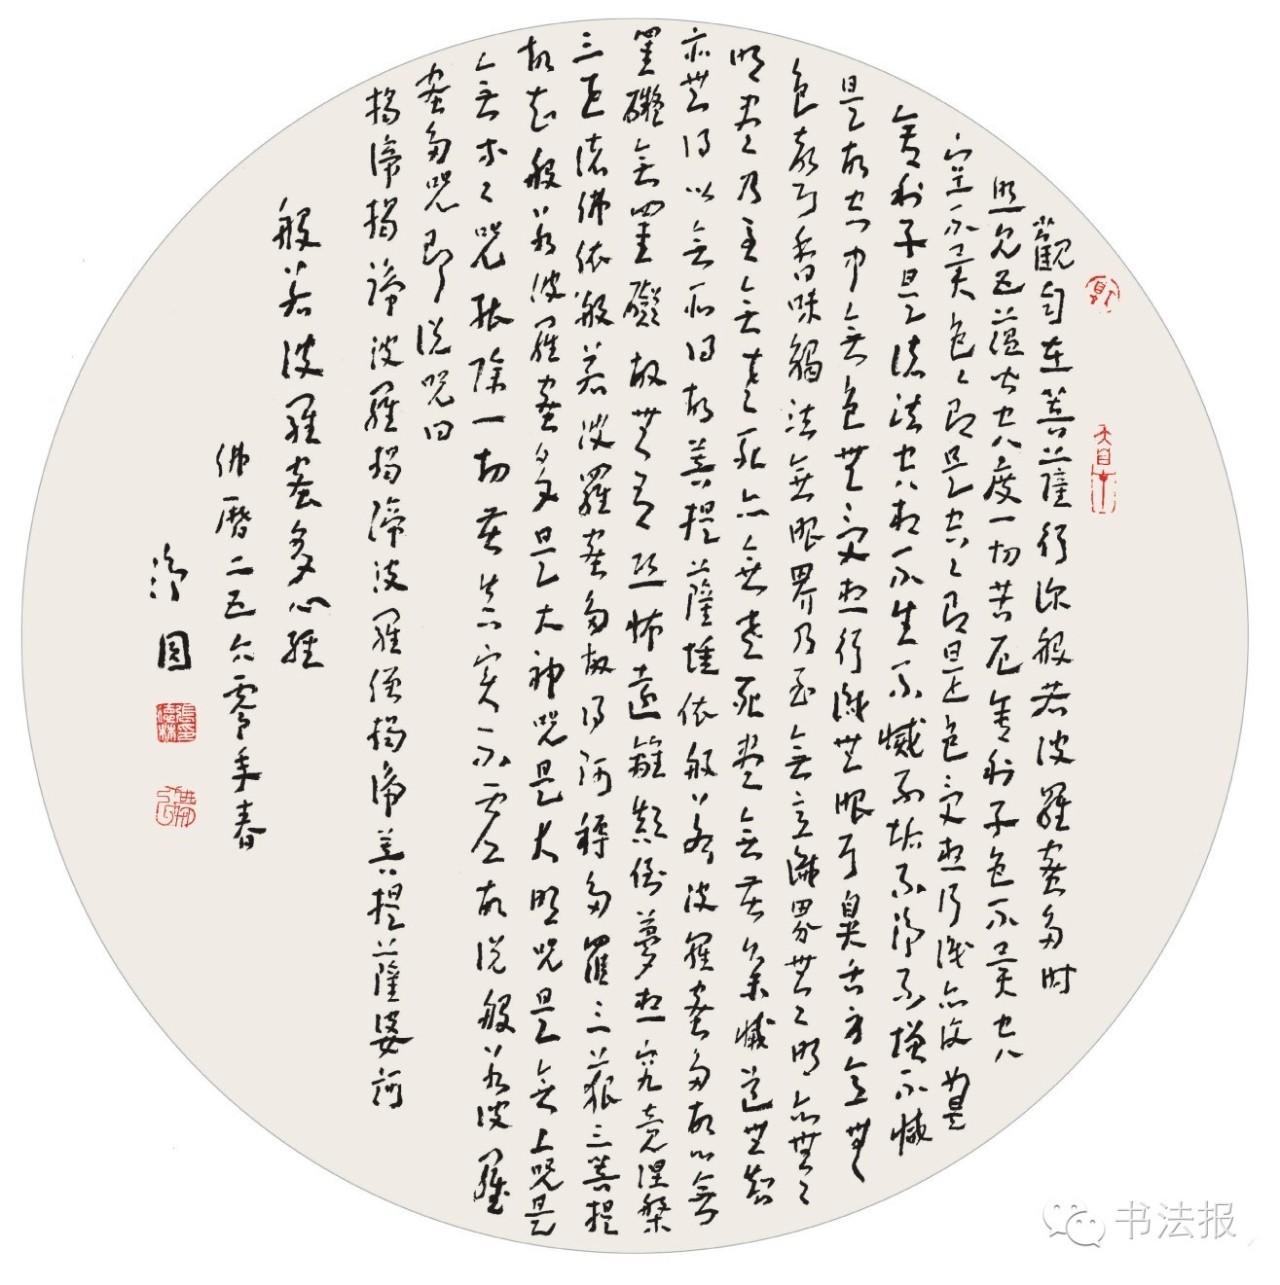 觀自在菩薩行深般若波羅蜜多時
照見五蘊皆空度一切苦厄舍利子色不異空
空不異色々即是空々即是色受想行識亦復如是
舍利子是諸法空相不生不滅不垢不淨不增不減
是故空中無色無受想行識無眼耳鼻舌身意無
色聲香味觸法無眼界乃至無意識界無々明亦無々
明盡乃至無老死亦無老死盡無苦集滅道無智
亦無得以無所得故菩提薩埵依般若波羅蜜多故心無
罣礙無罣礙故無有恐怖遠離顛倒夢想究竟涅槃
三世諸佛依般若波羅蜜多故得阿耨多羅三藐三菩提
故知般若波羅蜜多是大神咒是大明咒是無上咒是
無等々咒能除一切苦真實不虛故說般若波羅
蜜多咒即說咒曰
揭諦揭諦波羅揭諦波羅僧揭諦菩提薩婆訶
般若波羅蜜多心經
佛曆二五六零年春
淨因
书法报